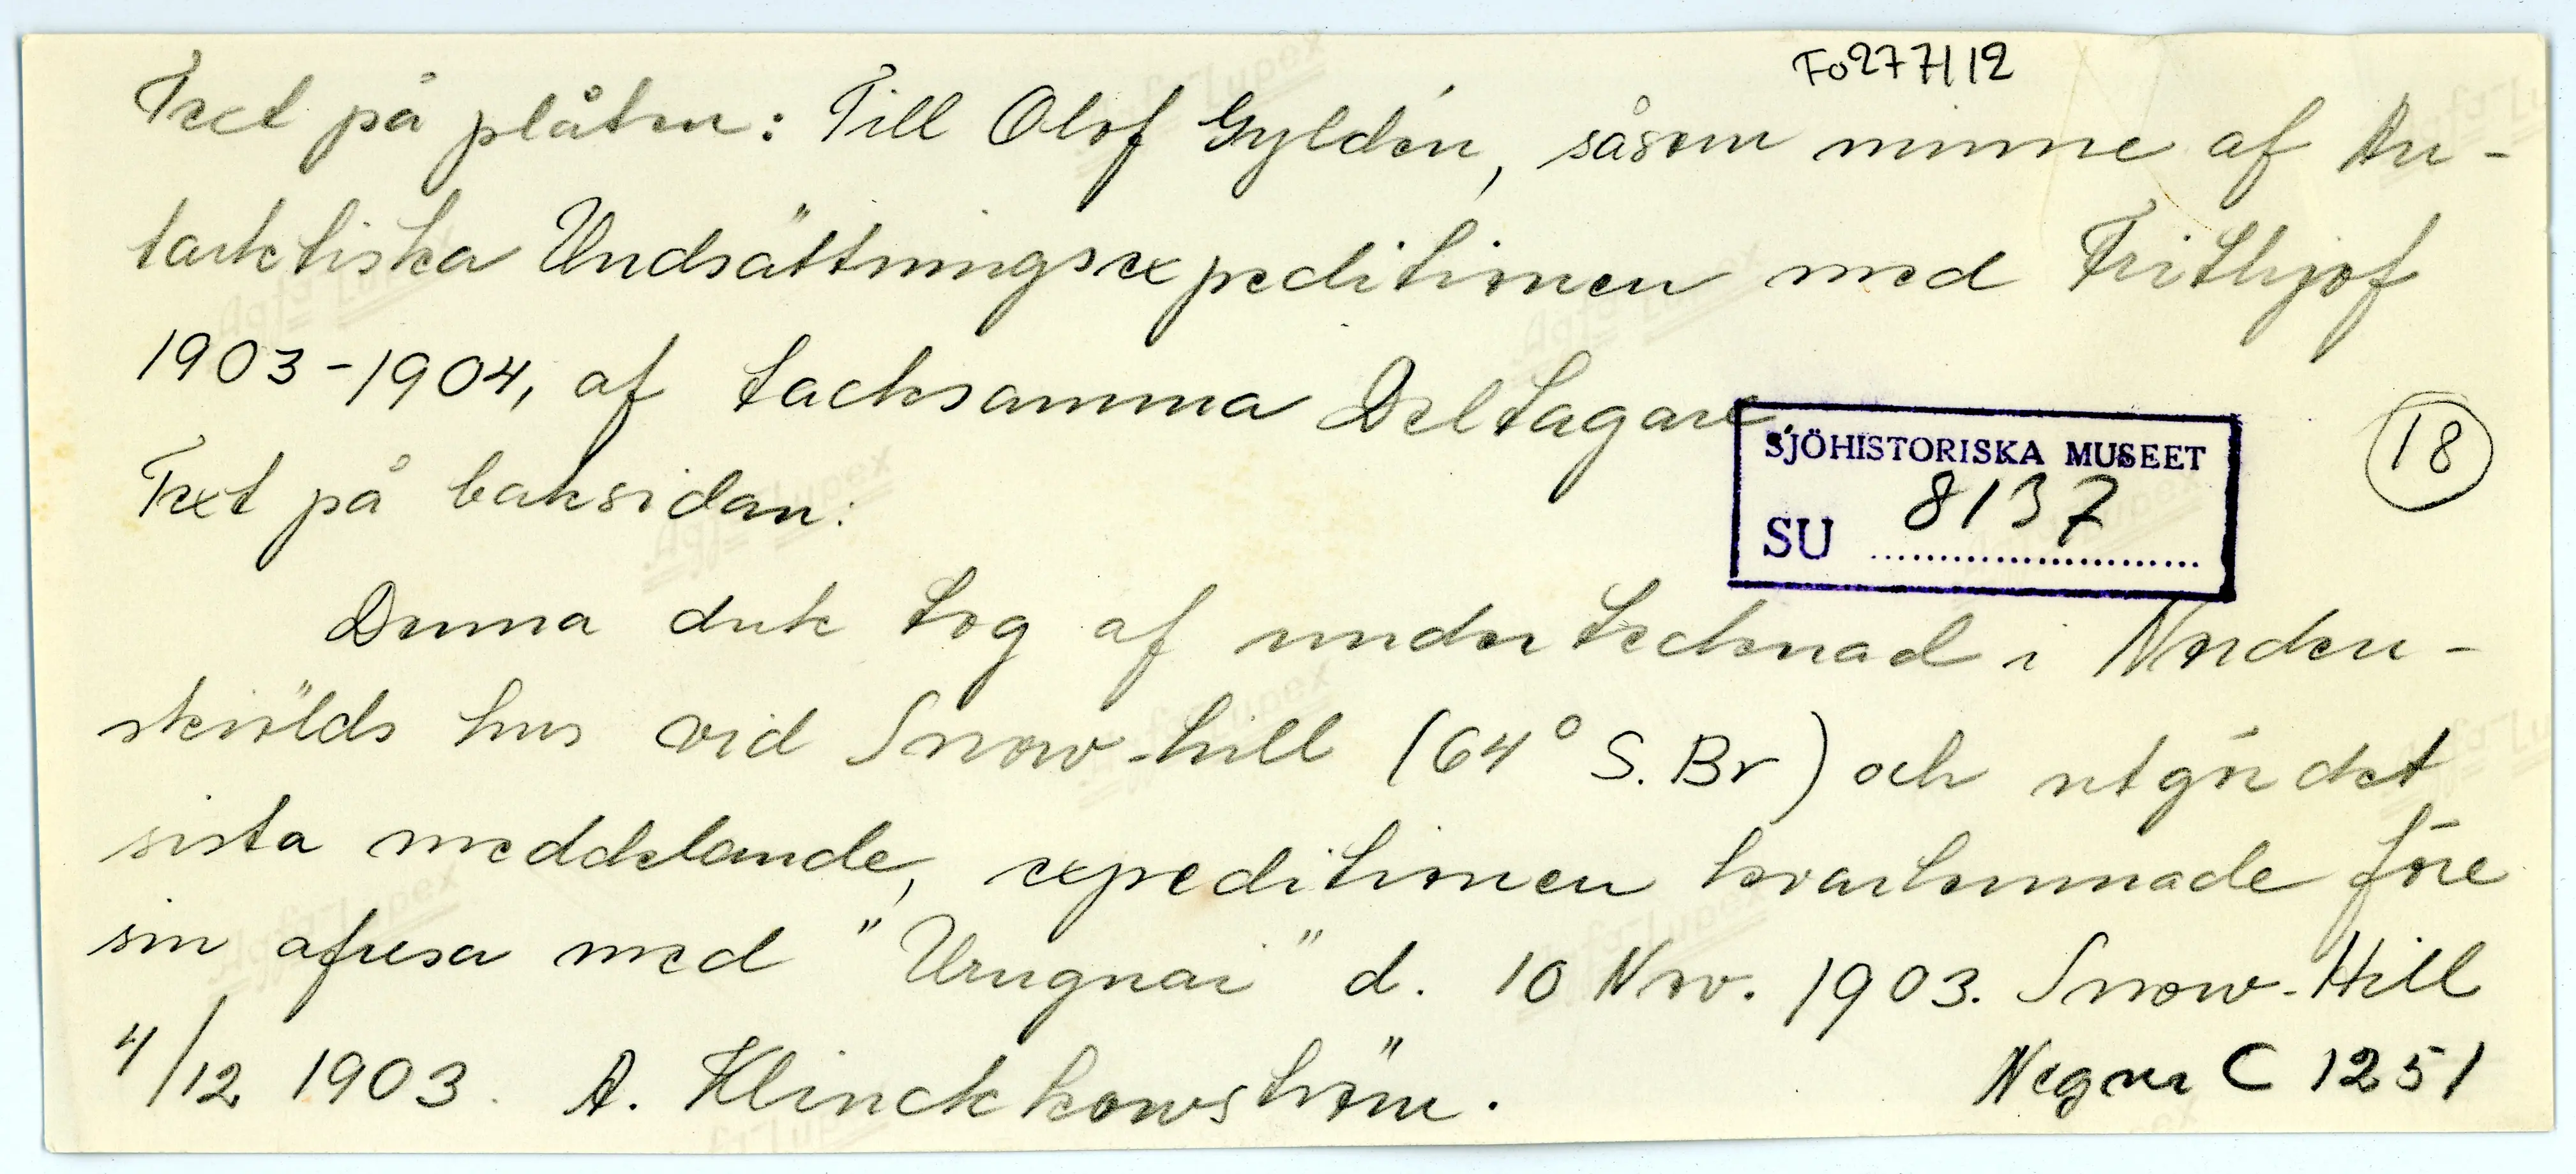 Fo277/12
Text på plåten: Till Olof Gyldén, såsom minne af An-
tarktiska Undsättningsexpeditionen med Frithjof
1903-1904, af tacksamma Deltagare.
SJÖHISTORISKA MUSEET
SU 8137
18
Text på baksidan:
Denna duk tog af undertecknad i Norden-
skiölds hus vid Snow-hill (64° S. Br) och utgör det
sista meddelande, expeditionen kvarlemnade före
sin afresa med "Uruguai" d. 10 Nov. 1903. Snow-Hill
4/12 1903. A. Klinckkowström.
Neg nr C 1251
Agfa-Lupex